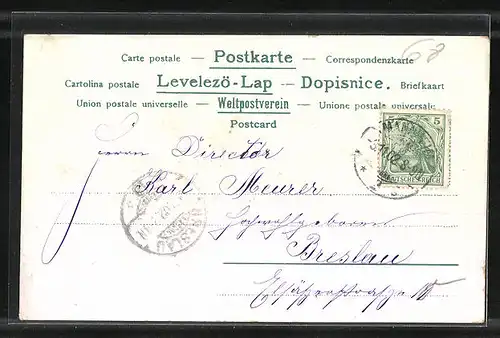 68
Carte postale — Postkarte — Correspondenzkarte
Cartolina postale — Levelezö-Lap — Dopisnice. Briefkaart
Union postale universelle — Weltpostverein — Unione postale universale
Postcard
5
Herrn Director
Karl Meurer
Hochwohlgeboren
Breslau
BRESLAU